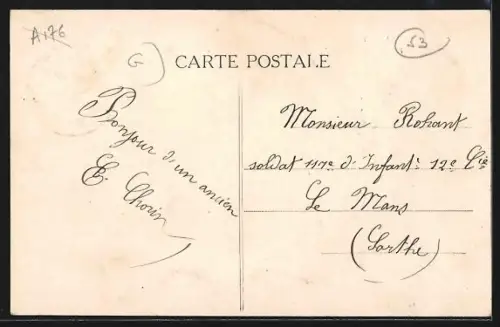 A176
G
53
CARTE POSTALE
Bonjour d'un ancien
E. Chorin
Monsieur Rohant
soldat 117e d'Infant. 12e Cie
Le Mans
(Sarthe)